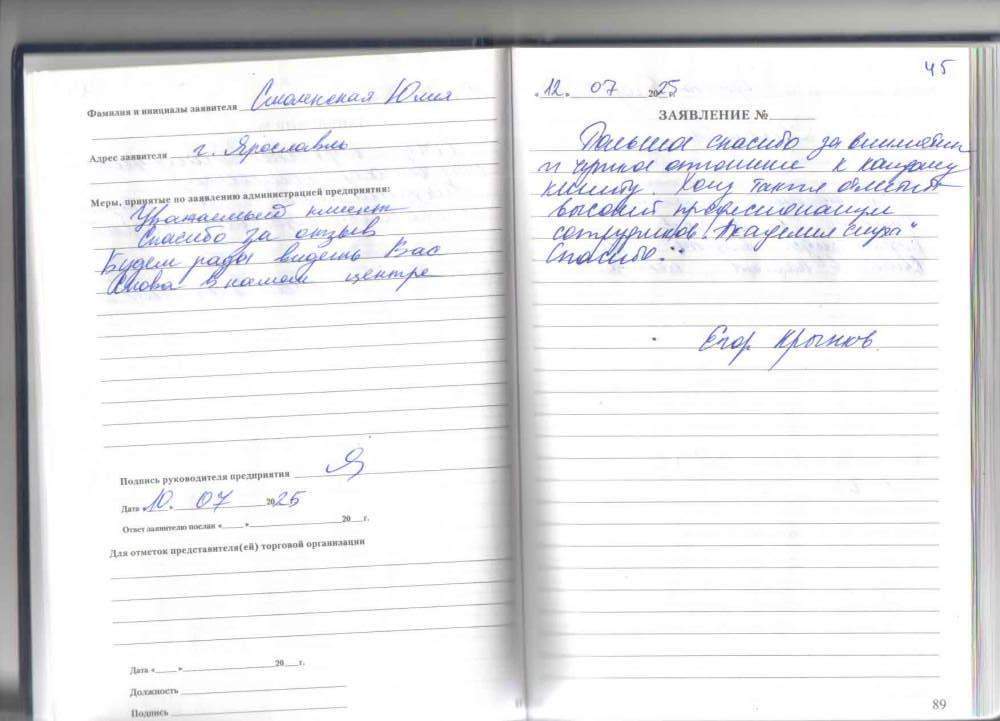 Фамилия и инициалы заявителя Смоленская Юлия
Адрес заявителя г. Ярославль
Меры, принятые по заявлению администрацией предприятия:
Уважаемый клиент
Спасибо за отзыв
Будем рады видеть Вас
Снова в нашем центре
Подпись руководителя предприятия
Дата «10. 07 2025
Ответ заявителю послан «____»____________20__г.
Для отметок представителя(ей) торговой организации
Дата «____»____________20__г.
Должность
Подпись
45
«12» 07 2025г.
ЗАЯВЛЕНИЕ №
Большое спасибо за внимание
и чуткое отношение к каждому
клиенту.
высокий професионализм
сотрудников "Академия
Спасибо.
Егор Крынков
89